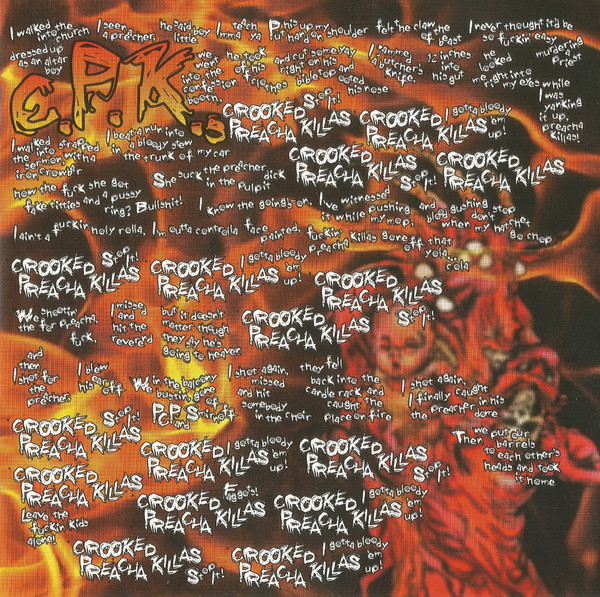 I walked the into church dressed up as an altar boy
I seen a preacher,
he said boy little
I teach Imma ya
P
his up my ut hand on shoulder
felt the claw of the beast
I never thought it'd be so fuckin' easy murdering a priest
C.P.K.'s
we went into the confession booth,
he took off his clothes
and cut some yay right on his bible top and ooted his nose
I jammed a butcher's knife,
12 inches into his gut
he looked me right into my eyes while
I was yanking it up, preacha killas!
CROOKED PREACHA KILLAS
Stop It!
CROOKED PREACHA KILLAS
I gotta bloody 'em up!
CROOKED PREACHA KILLAS
Stop It!
CROOKED PREACHA KILLAS
I walked strapped into the sermon with a iron crowbar
I beat a nun into a bloody stew in the trunk of my car
She suck the preacher dick in the pulpit
how the fuck she got fake titties and a pussy ring? Bullshit!
I know the goings on, I've witnessed it while my m.o.
pushing and gushing blood don't stop when my hatchet go chop
I ain't a fuckin holy rolla, I'm outta controlla face painted, fuckin' preacha killas gone off that yola... cola
CROOKED PREACHA KILLAS
Stop It!
CROOKED PREACHA KILLAS
I gotta bloody 'em up!
CROOKED PREACHA KILLAS
Stop It!
CROOKED PREACHA KILLAS
We shootin' the for preacha,
I missed and fuck,
hit the reverend
but it doesn't matter though they say he's going to heaven
and then I shot for the preachers
I blew his ear off
We in the balcony we bustin', gone off PCP and Smirnoff
I shot again, missed and hit somebody in the choir
they fell back into the candle rack and caught the place on fire
I shot again, I finally caught the preacher in his dome
Then we put our barrels to each other's heads and took it home
CROOKED PREACHA KILLAS
Stop It!
CROOKED PREACHA KILLAS
I gotta bloody 'em up!
CROOKED PREACHA KILLAS
Stop It!
CROOKED PREACHA KILLAS
Leave the fuckin kids alone!
CROOKED PREACHA KILLAS
Faggots!
CROOKED PREACHA KILLAS
I gotta bloody 'em up!
CROOKED PREACHA KILLAS
Stop It!
CROOKED PREACHA KILLAS
I gotta bloody 'em up!